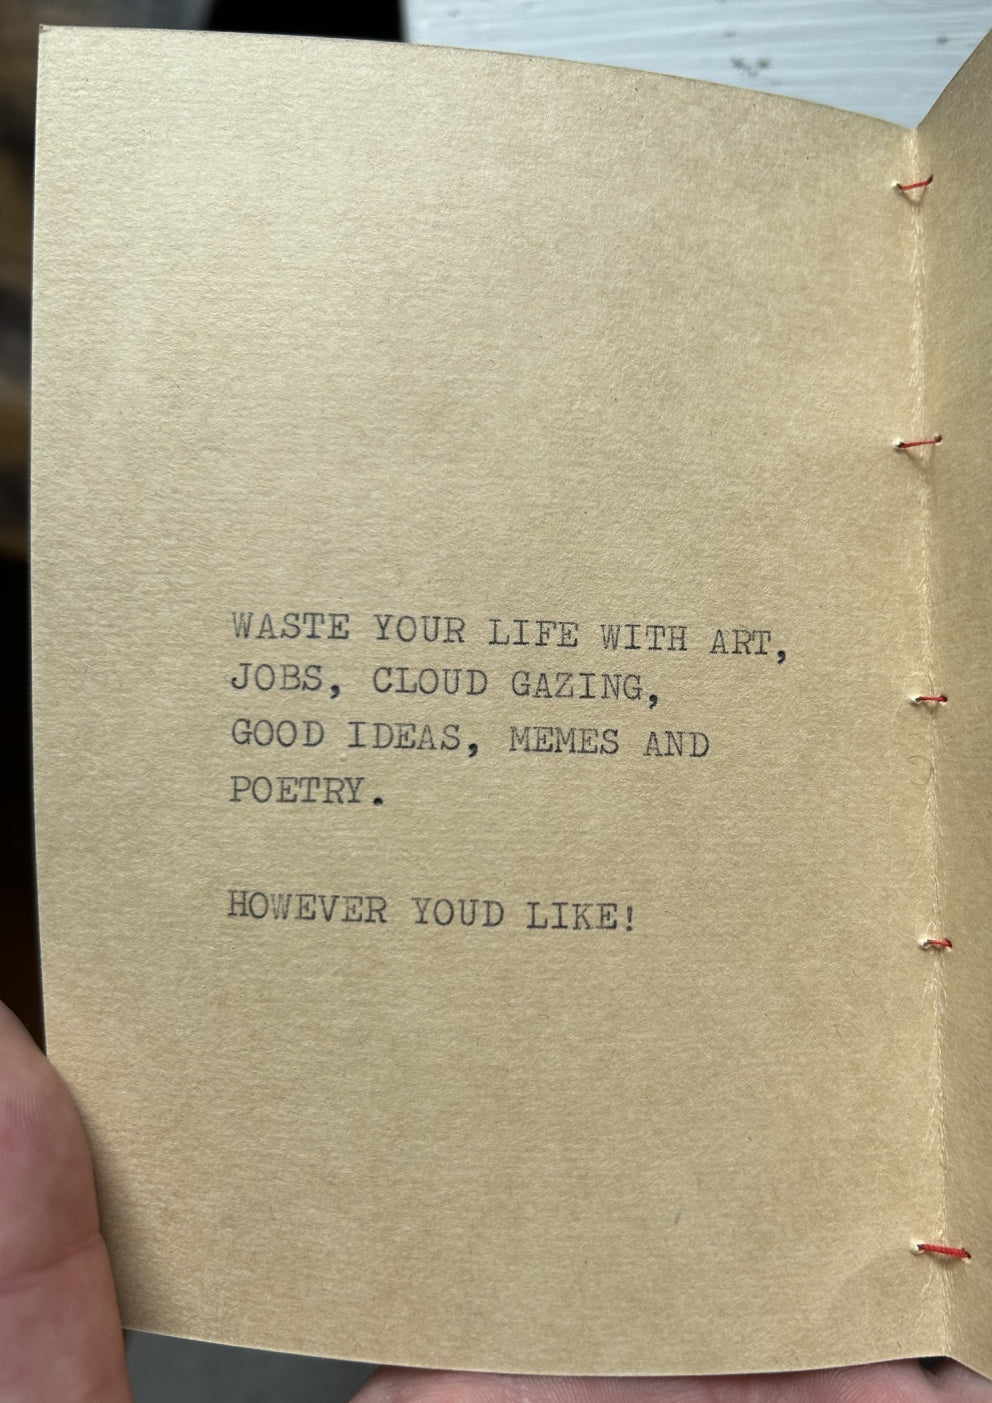 WASTE YOUR LIFE WITH ART,
JOBS, CLOUD GAZING,
GOOD IDEAS, MEMES AND
POETRY.
HOWEVER YOUD LIKE!